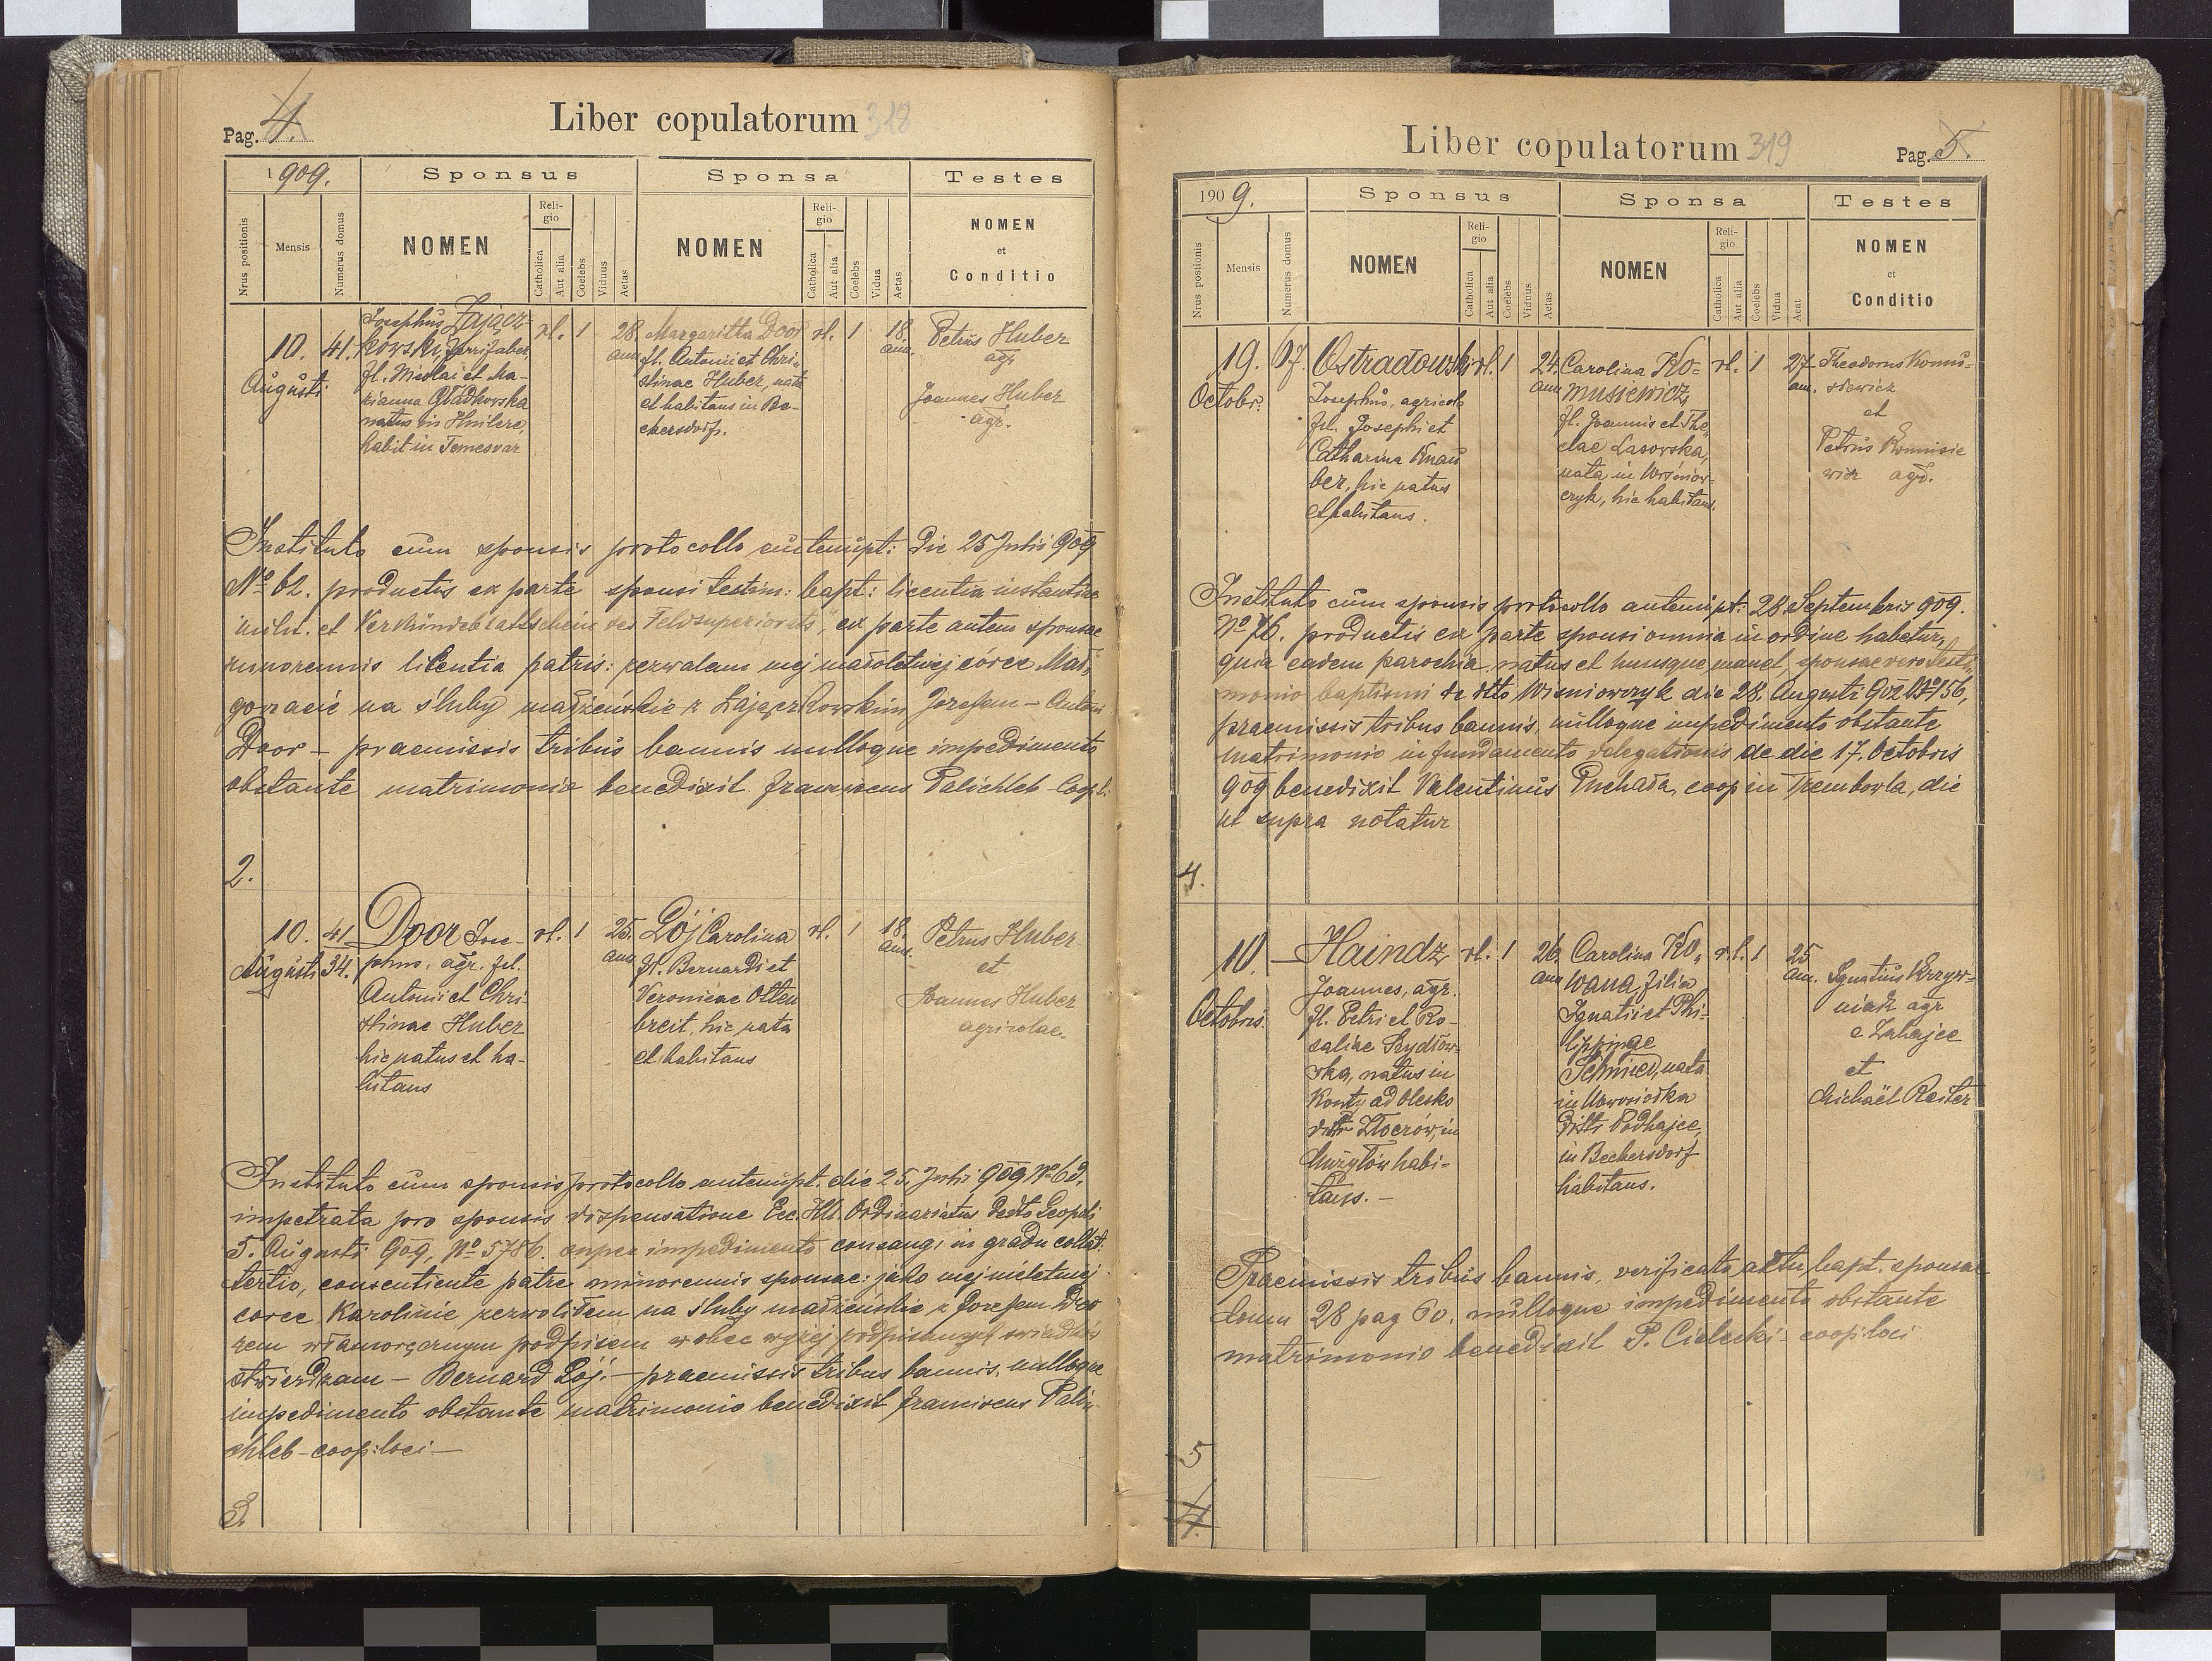 Pag. 4.
Liber copulatorum 318
1909.
Sponsus
Sponsa
Testes
Nrus positionis
Mensis
Numerus domus
NOMEN
Religio
Catholica
Aut alia
Coelebs
Viduus
Aetas
NOMEN
Religio
Catholica
Aut alia
Coelebs
Vidua
Aetas
NOMEN
et
Conditio
10.
Augusti
41.
Josephus Zającz-
kowski,
fl. Nicolai et Ma-
rianna Gładkowska
natus in Hnilcze,
habit in Temesvar
rl. 1 28. ann
Margaritta Door
fl. Antonii et Chri-
stinae Huber, nata
et habitans in Be-
ckersdorf.
rl. 1 18. ann.
Petrus Huber
agr.
Joannes Huber
agr.
Instituto cum sponsis protocollo antenupt: die 25 Julii 909
No 62. productis ex parte sponsi testim: bapt: licentia instantiae
milit. et Verkündeblattschein des Feldsuperiorats, ex parte autem sponsae
minorennis licentia patris: zezwalam mej małoletniej córce Mał-
gorzacie na śluby małżeńskie z Zajączkowskim Józefem – Antoni
Door – praemissis tribus bannis nulloque impedimento
obstante matrimonio benedixit Franciscus Palichleb Coop.
2.
10.
Augusti
41
34.
Door Jose-
phus, agr. fil.
Antonii et Chri
stinae Huber
hic natus et ha-
bitans
rl. 1 25. ann
Lój Carolina
fl. Bernardi et
Veronicae Otten
breit, hic nata
et habitans
rl. 1 18. ann.
Petrus Huber
et
Joannes Huber
agricolae.
Instituto cum sponsis protocollo antenupt. die 25. Julii 909 No 63.
impetrata pro sponsis dispensatione Exc. Ill. Ordinariatus Leopoli
5. Augusti 909, No 5786. super impedimento consang: in gradu collat.
tertio, consentiente patre minorennis sponsae: jako mej nieletniej
córce Karolinie zezwoliłem na śluby małżeńskie z Józefem Doo
rem własnoręcznym podpisem wobec wyżej podpisanych świadków
stwierdzam – Bernard Lój. – praemissis tribus bannis, nulloque
impedimento obstante matrimonio benedixit Franciscus Pali-
chleb – coop: loci –
3.
Liber copulatorum 319
Pag. 5.
1909.
Sponsus
Sponsa
Testes
Nrus postionis
Mensis
Numerus domus
NOMEN
Religio
Catholica
Aut alia
Coelebs
Viduus
Aetas
NOMEN
Religio
Catholica
Aut alia
Coelebs
Vidua
Aetat
NOMEN
et
Conditio
19.
Octobr.
67.
Ostradowski
Josephus, agricola
fil. Josephi et
Catharina Knau
ber, hic natus
et habitans.
rl. 1 24. ann
Carolina Ko-
musiewicz,
fl. Joannis et The-
clae Lasowska,
nata in Wiśniow-
czyk, hic habitans.
rl. 1 27 ann.
Theodorus Komu-
siewicz
et
Petrus Komusie
wicz agr.
Instituto cum sponsis protocollo antenupt: 28 Septembris 909.
No 76. productis ex parte sponsi omnia in ordine habetur,
quia eadem parochia natus et hucusque manet, sponsae vero testi-
monio baptismi de dtto Wisniowczyk die 28. Augusti 902 No 156,
praemissis tribus bannis, nulloque impedimento obstante
matrimonio in fundamento delegationis de die 17. Octobris
909 benedixit Valentinus Puchała, coop in Trembowla, die
ut supra notatur
4.
10.
Octobris.
–
Haindz
Joannes, agr.
fl. Petri et Ro-
saliae Szydłow-
ska, natus in
Konty ad Olesko
distr Złoczów, in
habi-
tans. –
rl. 1 26. ann
Carolina Ko-
wana, filia
Ignatii et Phi-
lippinae
Schmied, nata
in Nowosiołka
distr Podhajce,
in Beckersdorf
habitans.
r.l. 1 25 ann.
Ignatius Krzyw-
niak agr
e Zahajce
et
Michaël Reiter
Praemissis tribus bannis, verificato actu bapt. sponsae
domu 28 pag 60. nulloque impedimento obstante
matrimonio benedixit P. Cielecki – coop: loci
5
4.